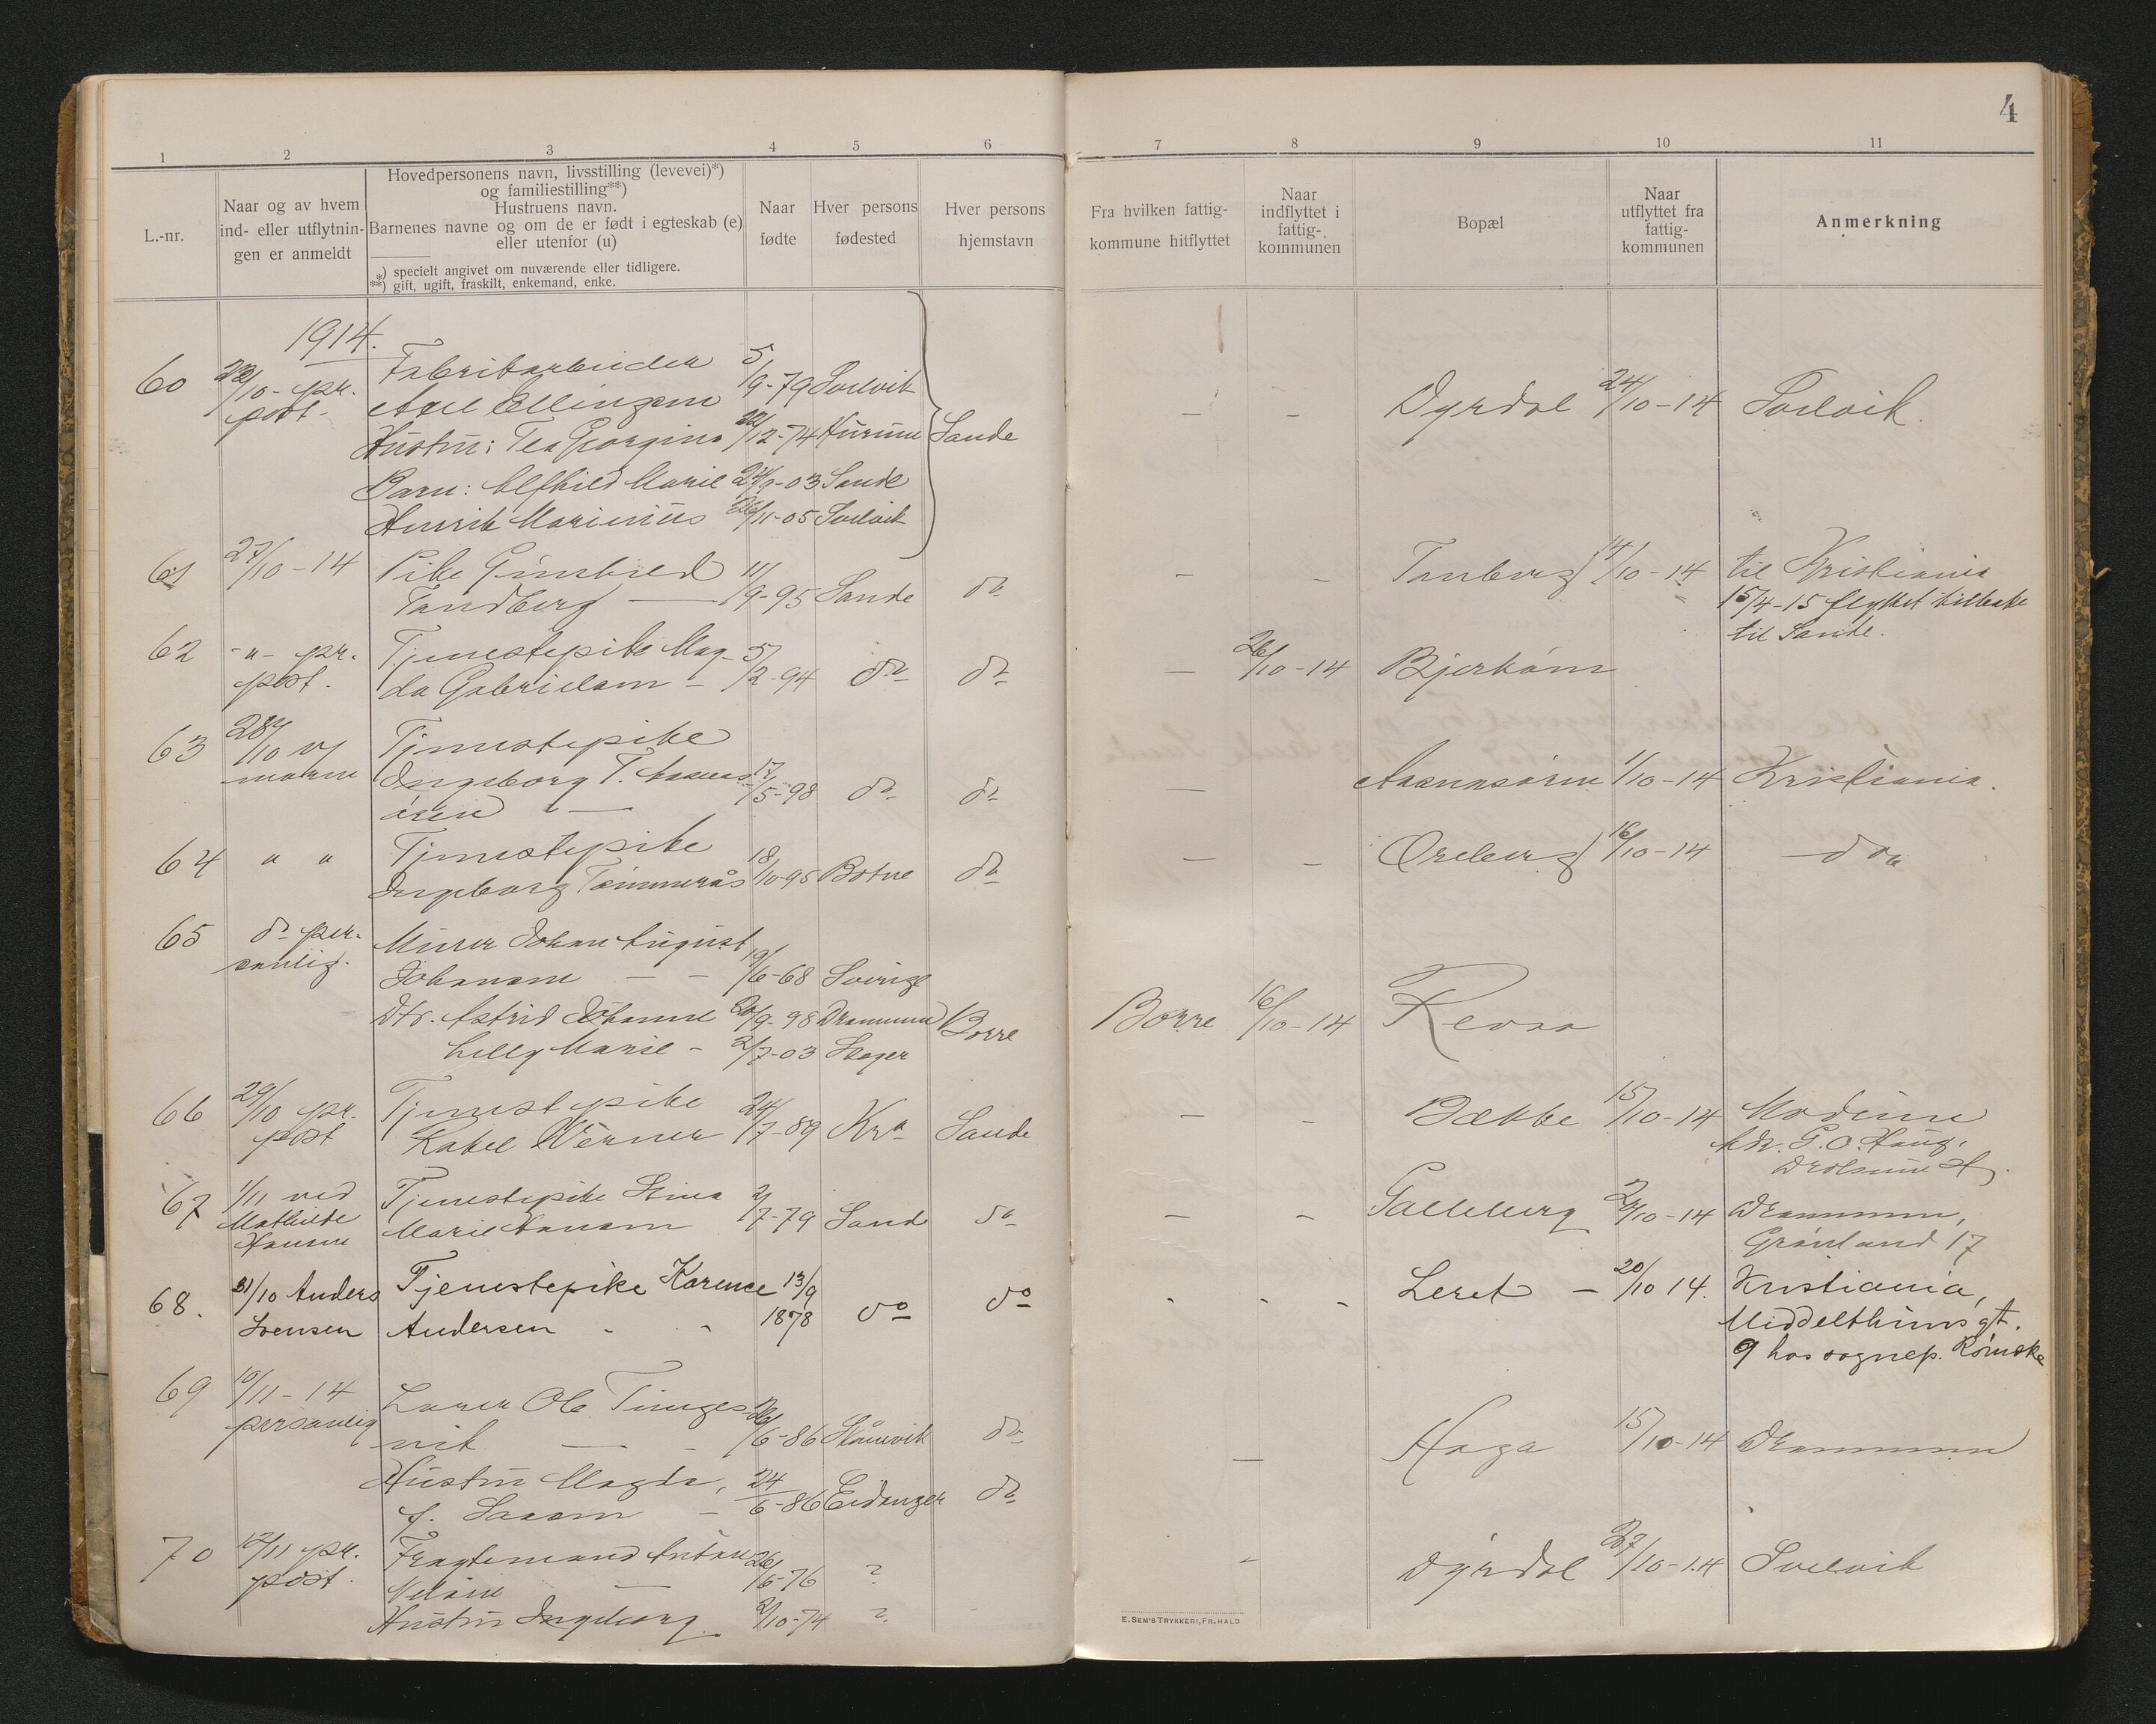 4
1 2 3 4 5 6 7 8 9 10 11
L.-nr.
Naar og av hvem
ind- eller utflytnin-
gen er anmeldt
Hovedpersonens navn, livsstilling (levevei)*)
og familiestilling**)
Hustruens navn.
Barnenes navne og om de er født i egteskab (e)
eller utenfor (u)
*) specielt angivet om nuværende eller tidligere.
**) gift, ugift, fraskilt, enkemand, enke.
Naar
fødte
Hver persons
fødested
Hver persons
hjemstavn
Fra hvilken fattig-
kommune hitflyttet
Naar
indflyttet i
fattig-
kommunen
Bopæl
Naar
utflyttet fra
fattig-
kommunen
Anmerkning
1914.
60 22/10 - pr. Fabrikarbeider 5/9-79 Svelvik
post - Axel Ellingsen — — Dyrdal 24/10-14 Svelvik.
Hustru: Tea Georgine 22/12-74 Hurum Sande
Barn: Alfhild Marie 24/9-03 Sande
Henrik Marinius 26/11-05 Svelvik
61 27/10-14 Pike Gunhild 11/9-95 Sande do — — Tanberg 14/10-14 til Kristiania
Tandberg — 15/4-15 flyttet tilbake
til Sande.
62 -"- pr. Tjenestepike Mag- 5/2-94 do do — 26/10-14 Bjerkøen
post. da Gabrielsen -
63 28/10 v/ Tjenestepike
moren Ingeborg T. 17/5-98 do do — 1/10-14 Kristiania.
64 " " Tjenestepike 18/10-95 Botne do — — Øreberg 16/10-14 do
Ingeborg Tømmerås
65 do per- Murer Johan August
sonlig. Johansen — — 19/6-68 Sverige
Dtr. Astrid Johanne 20/9-98 Drammen Borre Borre 16/10-14 Revaa
Lilly Marie - 2/7-03 Skoger
66 29/10 pr. Tjenestepike 24/7-89 Kra Sande — - Bække 15/10-14 Modum
post Rakel Werner Adr. G. O. Haug,
Drolsum St.
67 1/11 ved Tjenestepike Stina 2/7-79 Sande do — - Galleberg 24/10-14 Drammen,
Mathilde Marie Hansen Grønland 17
Hansen
68. 31/10 Anders Tjenestepike Karence 13/9 do do - - - Leret - 20/10 14. Kristiania,
Svensen Andersen - - 1878 Middelthuns gt.
9 hos sognep. Rømcke
69 10/11-14 Lærer Ole Tunges-
personlig vik — - 26/6-86 Skånevik do — Haga 15/10-14 Drammen
Hustru Magda, 24/6-86 Eidanger do
f. Larsen -
70 12/11 pr. Fragtemand Anton 26/6-76 ? - Dyrdal 27/10-14 Svelvik
post. Nelson —
Hustru Ingeborg 2/10-74 ?
E. SEM'S TRYKKERI, FR.HALD